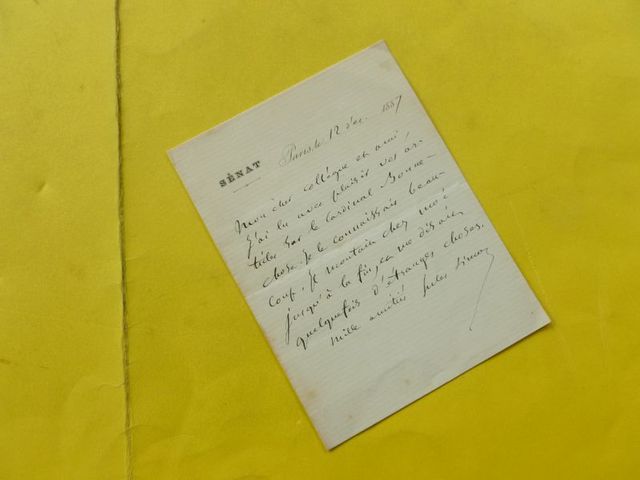 SÉNAT
Paris, le 12 déc. 1887
Mon cher collègue et ami,
J'ai lu avec plaisir vos ar-
ticles sur le Cardinal Bonne-
chose. Je le connaissais beau-
coup. Il montait chez moi
jusqu'à la fin, et me disait
quelquefois d'étranges choses.
Mille amitiés Jules Simon